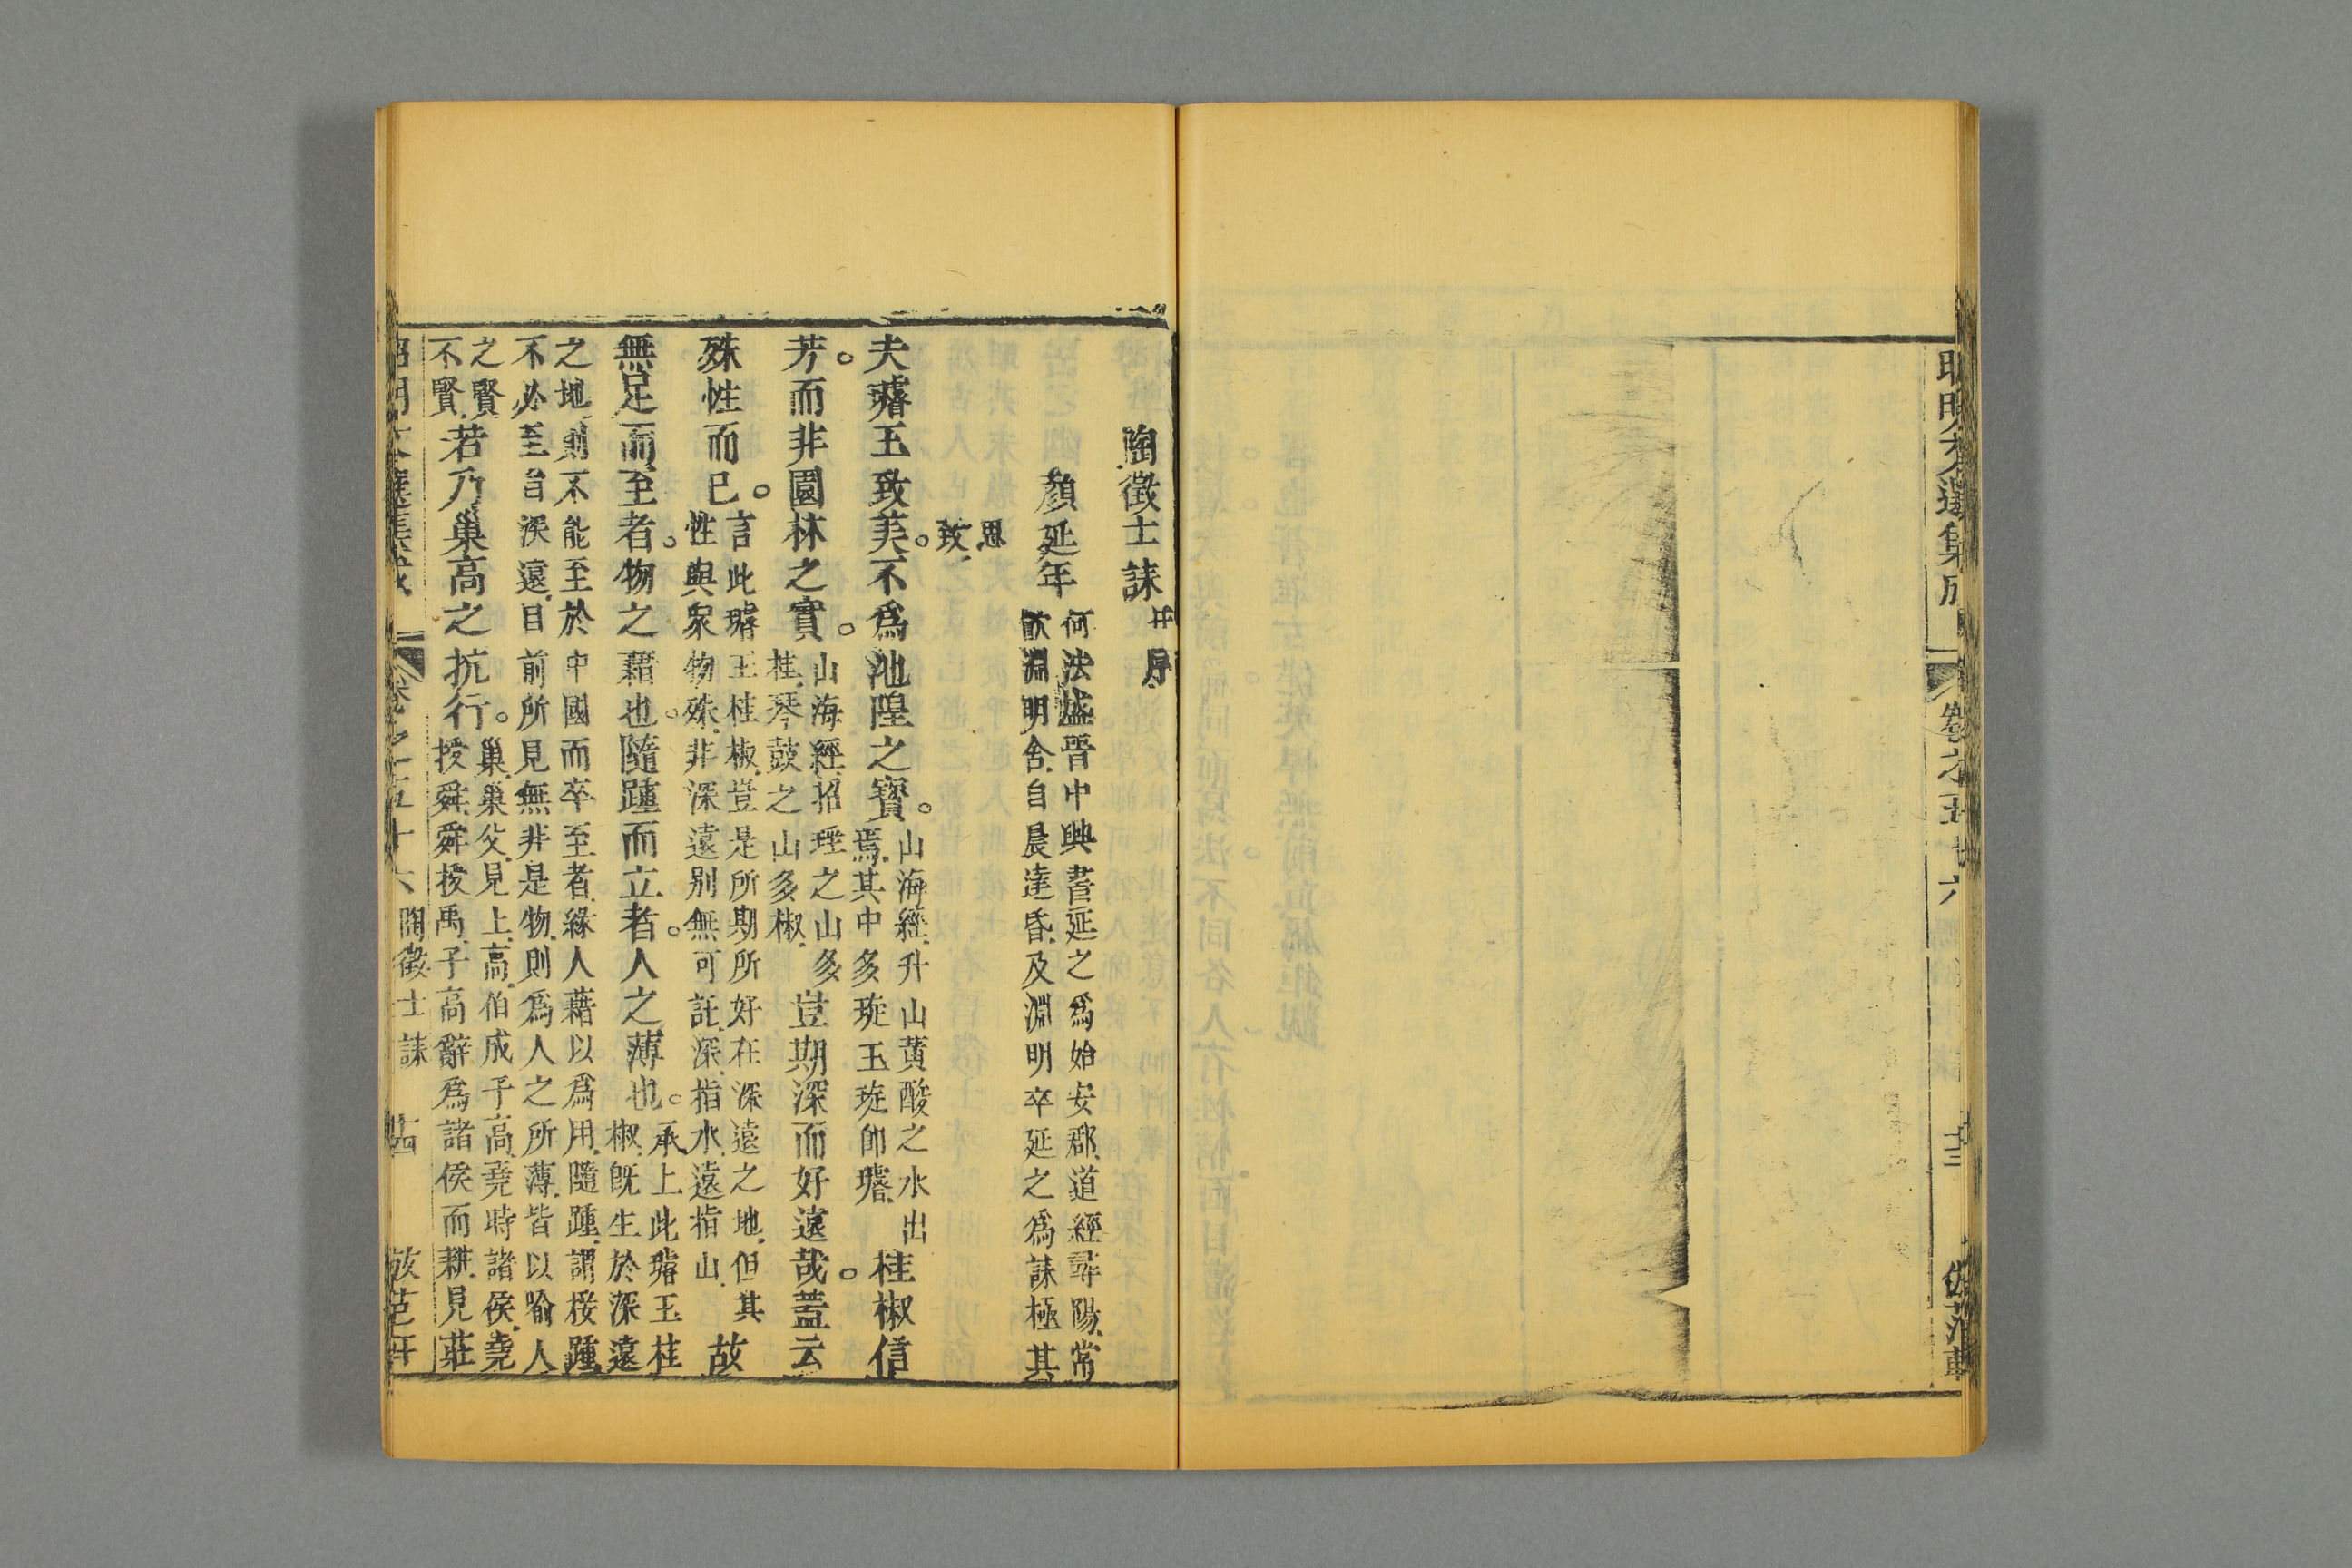 昭明文選集成 卷之五十六 範
陶徵士誄 并序
顏延年 何法盛晉中興書延之為始安郡道經尋陽常
飲淵明舍自晨達昏及淵明卒延之為誄極其
思
致
夫璿玉致美。不為池隍之寶。 山海經升山黃酸之水出
焉其中多琁玉琁即璿
桂椒信
芳。而非園林之實。 山海經招瑤之山多
桂琴鼓之山多椒
豈期深而好遠哉。蓋云
殊性而已。 言此璿玉桂椒豈是所期所好在深遠之地但其
性與衆物殊非深遠別無可託深指水遠指山
故
無足而至者。物之藉也。隨踵而立者。人之薄也。 承上此璿玉桂
椒旣生於深遠
之地則不能至於中國而卒至者緣人藉以為用隨踵謂接踵
不必至自深遠目前所見無非是物則為人之所薄皆以喻人
之賢
不賢
若乃巢高之抗行。 巢巢父見上高伯成子高堯時諸侯堯
授舜舜授禹子高辭為諸侯而耕見莊
昭明文選集成 卷之五十六 陶徵士誄